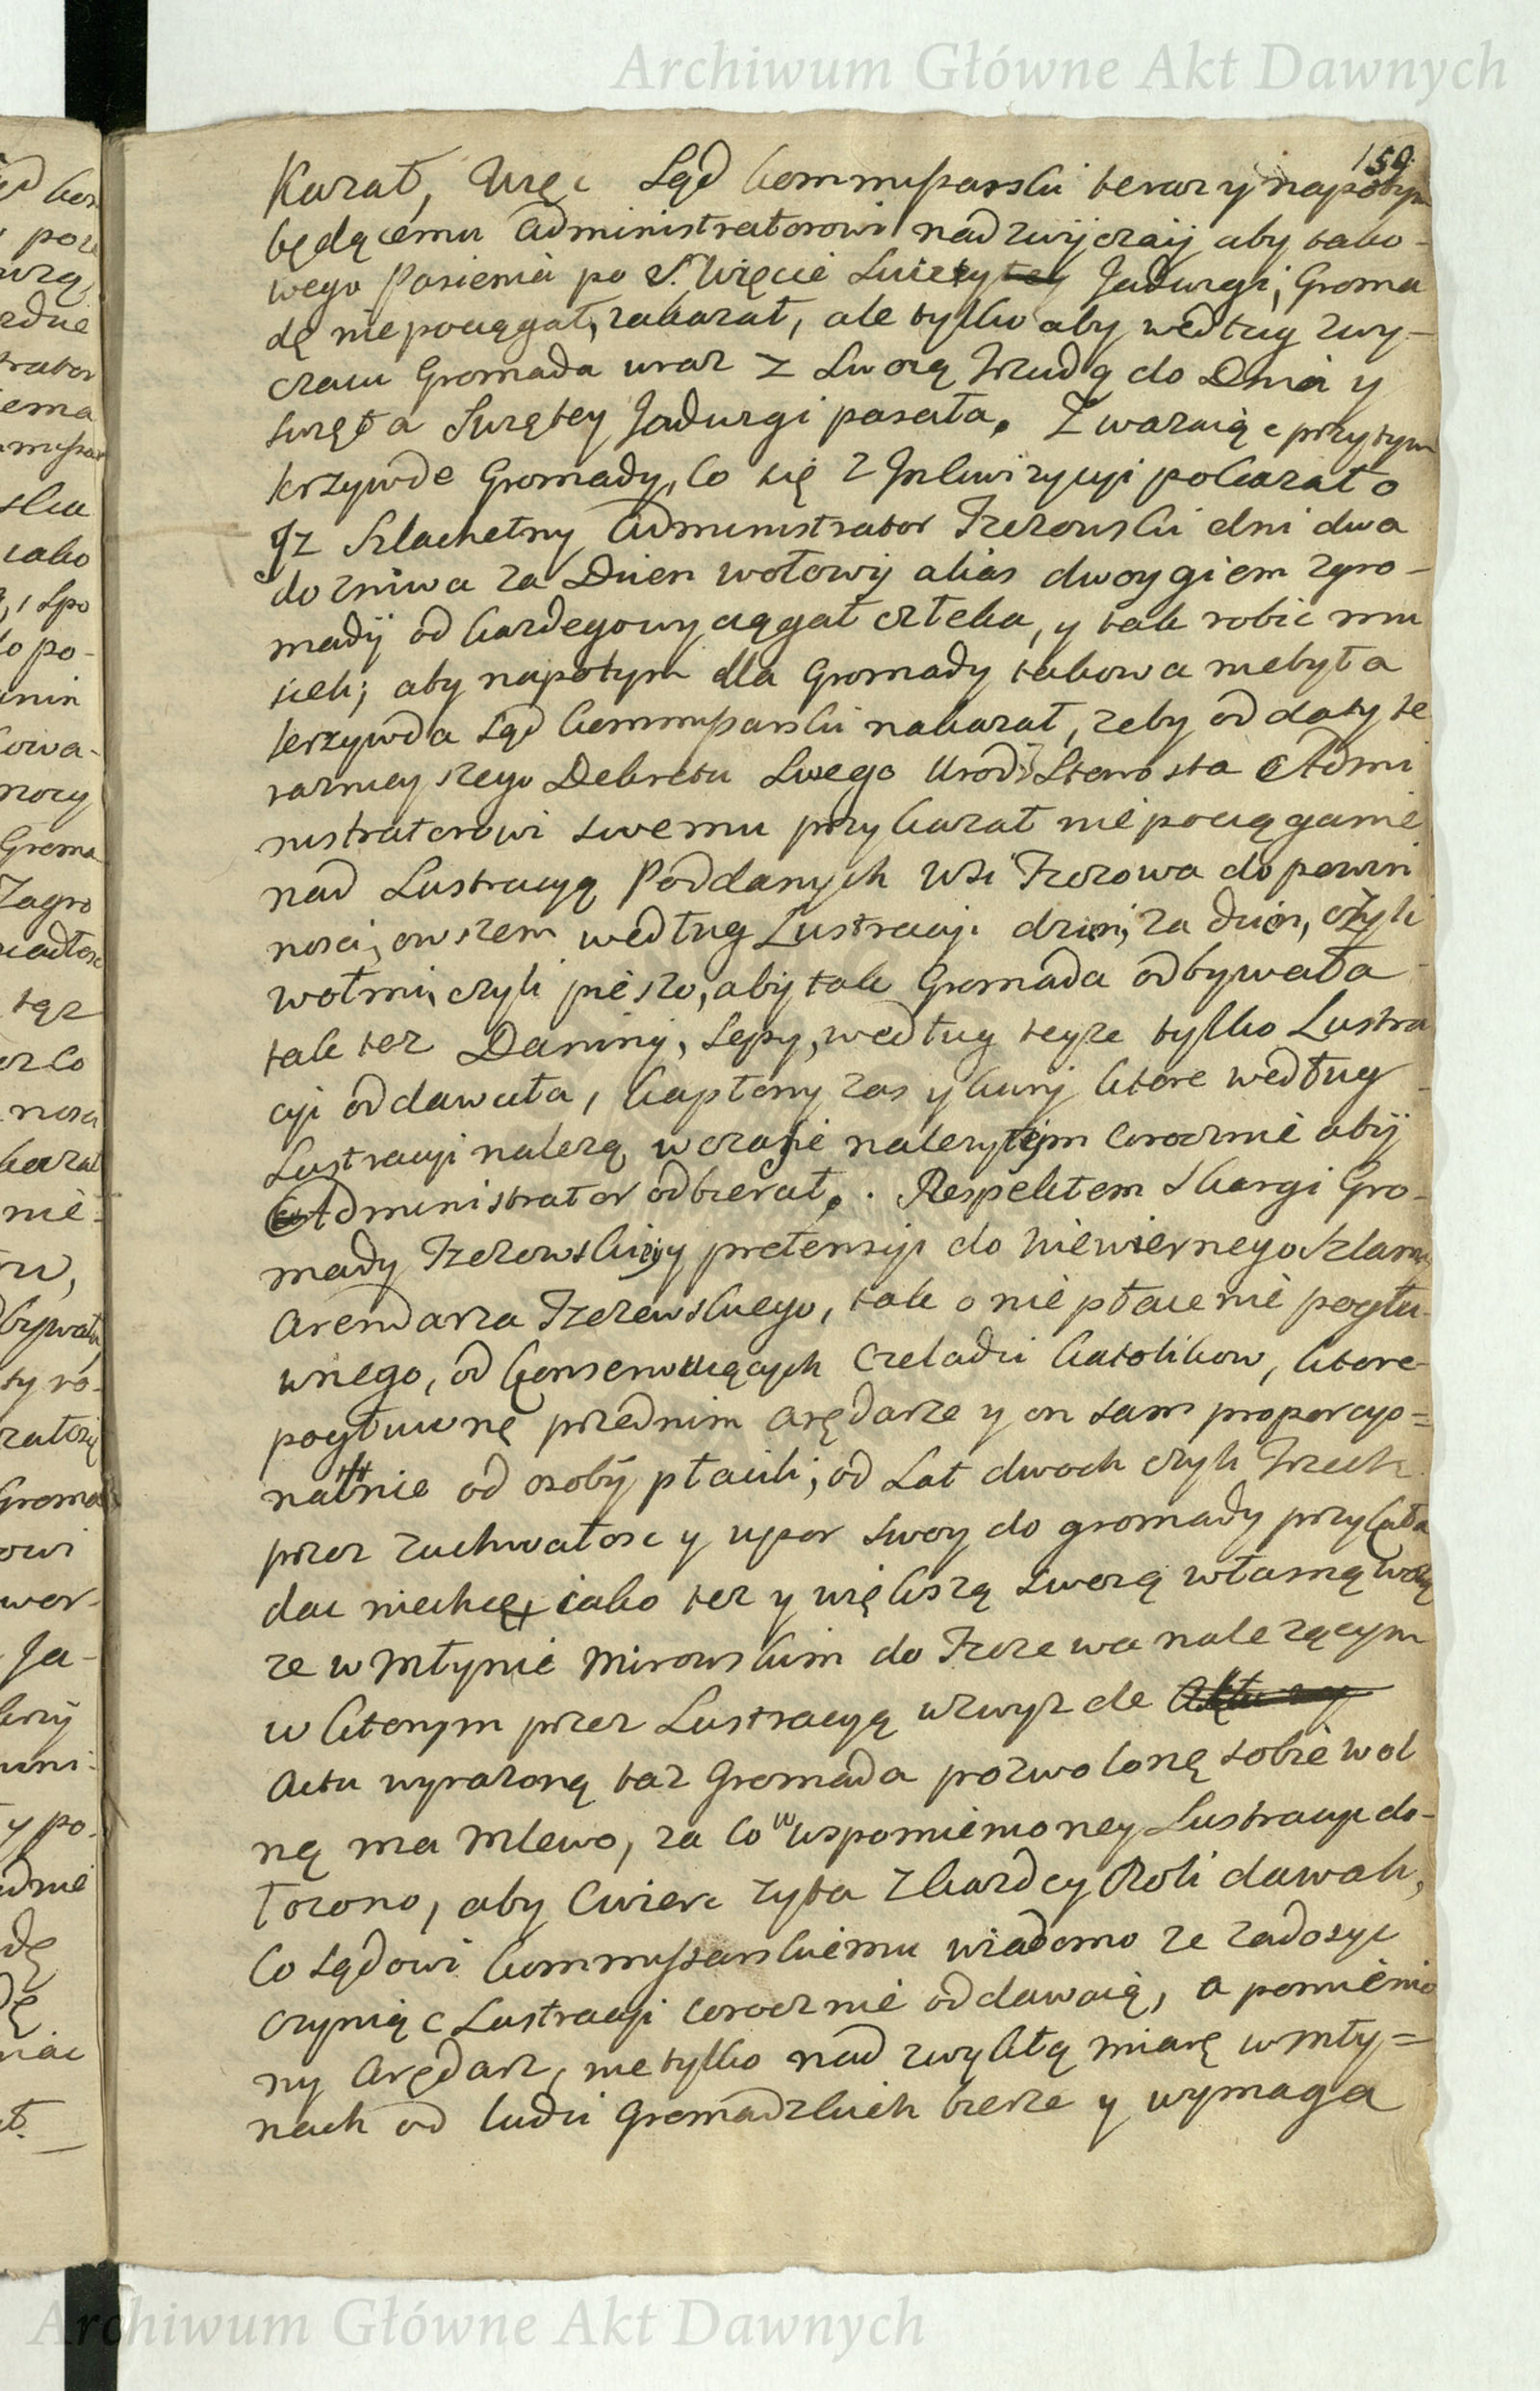 Archiwum Główne Akt Dawnych
159.
Karał, Więc Sąd Kommissarski teraz y napotym
będącemu Administratorowi nadzwyczaiy aby tako-
wego Pasienia po S. Więcie Swiety tey Jadwigi, Groma
dę nie pociągał, zakazał, ale tylko aby według zwy-
czaiu Gromada wraz z Swoią Trzudą do Dnia y
swięta Swiętey Jadwigi pasała. Zwazaiąc przytym
krzywde Gromady, co się z Inkwizycyi pokazało
Iz Szlachetny Administrator Trzezowski dni dwa
do zniwa za Dzien wołowy alias dwoygiem zgro-
mady od kazdego wyciągał człeka, y tak robic mu
sieli; aby napotym dla Gromady takowa niebyła
krzywda Sąd Kommissarski nakazał, zeby od daty te
raznieyszego Dekretu Swego Urodz: Starosta Admi
nistratorowi swemu przykazał nie pociąganie
nad Lustracyą Poddanych Wsi Trzezowa do powin
nosci, owszem według Lustracyi dzien, za dzien, czyli
wołmi, czyli pieszo, aby tak Gromada odbywała
tak tez Daniny, Sepy, według teyze tylko Lustra
cyi oddawała, kapłony zas y kury ktore według
Lustracyi nalezą w czasie nalezytym corocznie aby
Administrator odbierał. Respektem Skargi Gro-
mady Trzezowskiey pretensyi do Niewiernego Szlamy
Arendarza Trzezewskiego, tak o nie płacenie pogłu-
wnego, od konserwuiących czeladzi katolikow, ktore
pogłuwnę przednim arędarze y on sam proporcyo=
nalnie od osoby płacili, od Lat dwoch czyli Trzech
przez zuchwałosc y upor swoy do gromady przykłada
dac niechcę, iako tez y większą swoią własną wolą
ze w Młynie Mirowskim do Trzezewa nalezącym
w ktorym przez Lustracyą wzwyz de
Actu wyrazoną taz Gromada pozwoloną sobie wol
ną ma Mlewo, za co w wspomienioney Lustracyi do-
łozono, aby cwierc zyta z kazdey Roli dawali,
Co Sądowi Kommissarskiemu wiadomo ze zadosyc
czyniąc Lustracyi corocznie oddawaią, a pomienio
ny Arędarz, nie tylko nad zwykłą miarę w Mły=
nach od ludzi Gromadzkich bierze y wymaga
Archiwum Główne Akt Dawnych